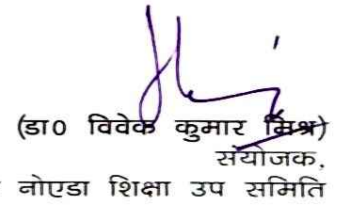 (डा0 विवेक कुमार मिश्र)
संयोजक,
नोएडा शिक्षा उप समिति